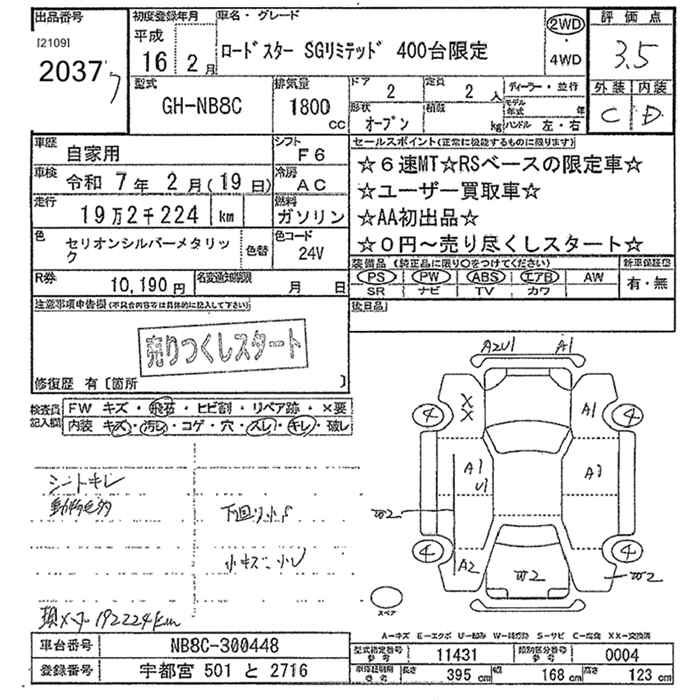 出品番号
[2109]
2037
初度登録年月
平成
16 年 2 月
車名・グレード
ロードスター SGリミテッド 400台限定
2WD
4WD
評価点
3.5
外装 内装
C D
型式
GH-NB8C
排気量
1800 CC
ドア
2
定員
2 人
形状
オープン
積載
kg
ディーラー・並行
モデル年式 年
ハンドル 左・右
車歴
自家用
シフト
F6
車検
令和 7 年 2 月 (19 日)
冷房
AC
走行
19万2千224 km
燃料
ガソリン
色
セリオンシルバーメタリック
色替
色コード
24V
R券
10,190 円
名変通知期限
月 日
セールスポイント(正常に機能するものに限ります)
☆6速MT☆RSベースの限定車☆
☆ユーザー買取車☆
☆AA初出品☆
☆0円~売り尽くしスタート☆
装備品 (純正品に限り○をつけてください)
PS PW ABS エアB AW
SR ナビ TV カワ
新車保証書
有・無
後日品
注意事項申告欄(不具合内容等は具体的に記入して下さい)
売りつくしスタート
修復歴 有 [箇所 ]
検査員記入欄
FW キズ・飛石・ヒビ割・リペア跡・×要
内装 キズ・汚レ・コゲ・穴・スレ・キレ・破レ
シートキレ
下回り小サ
小キズ小凹
現メーター192224km
A2U1 A1
4 X X A1 4
A1 U1
W2
4 A2 W2 4
W2
スペア
A-キズ E-エクボ U-凹み W-補修跡 S-サビ C-腐食 XX-交換済
車台番号
NB8C-300448
登録番号
宇都宮 501 と 2716
型式指定番号 参考
11431
類別区分番号 参考
0004
車体証明用 参考
長さ 395 cm 幅 168 cm 高さ 123 cm